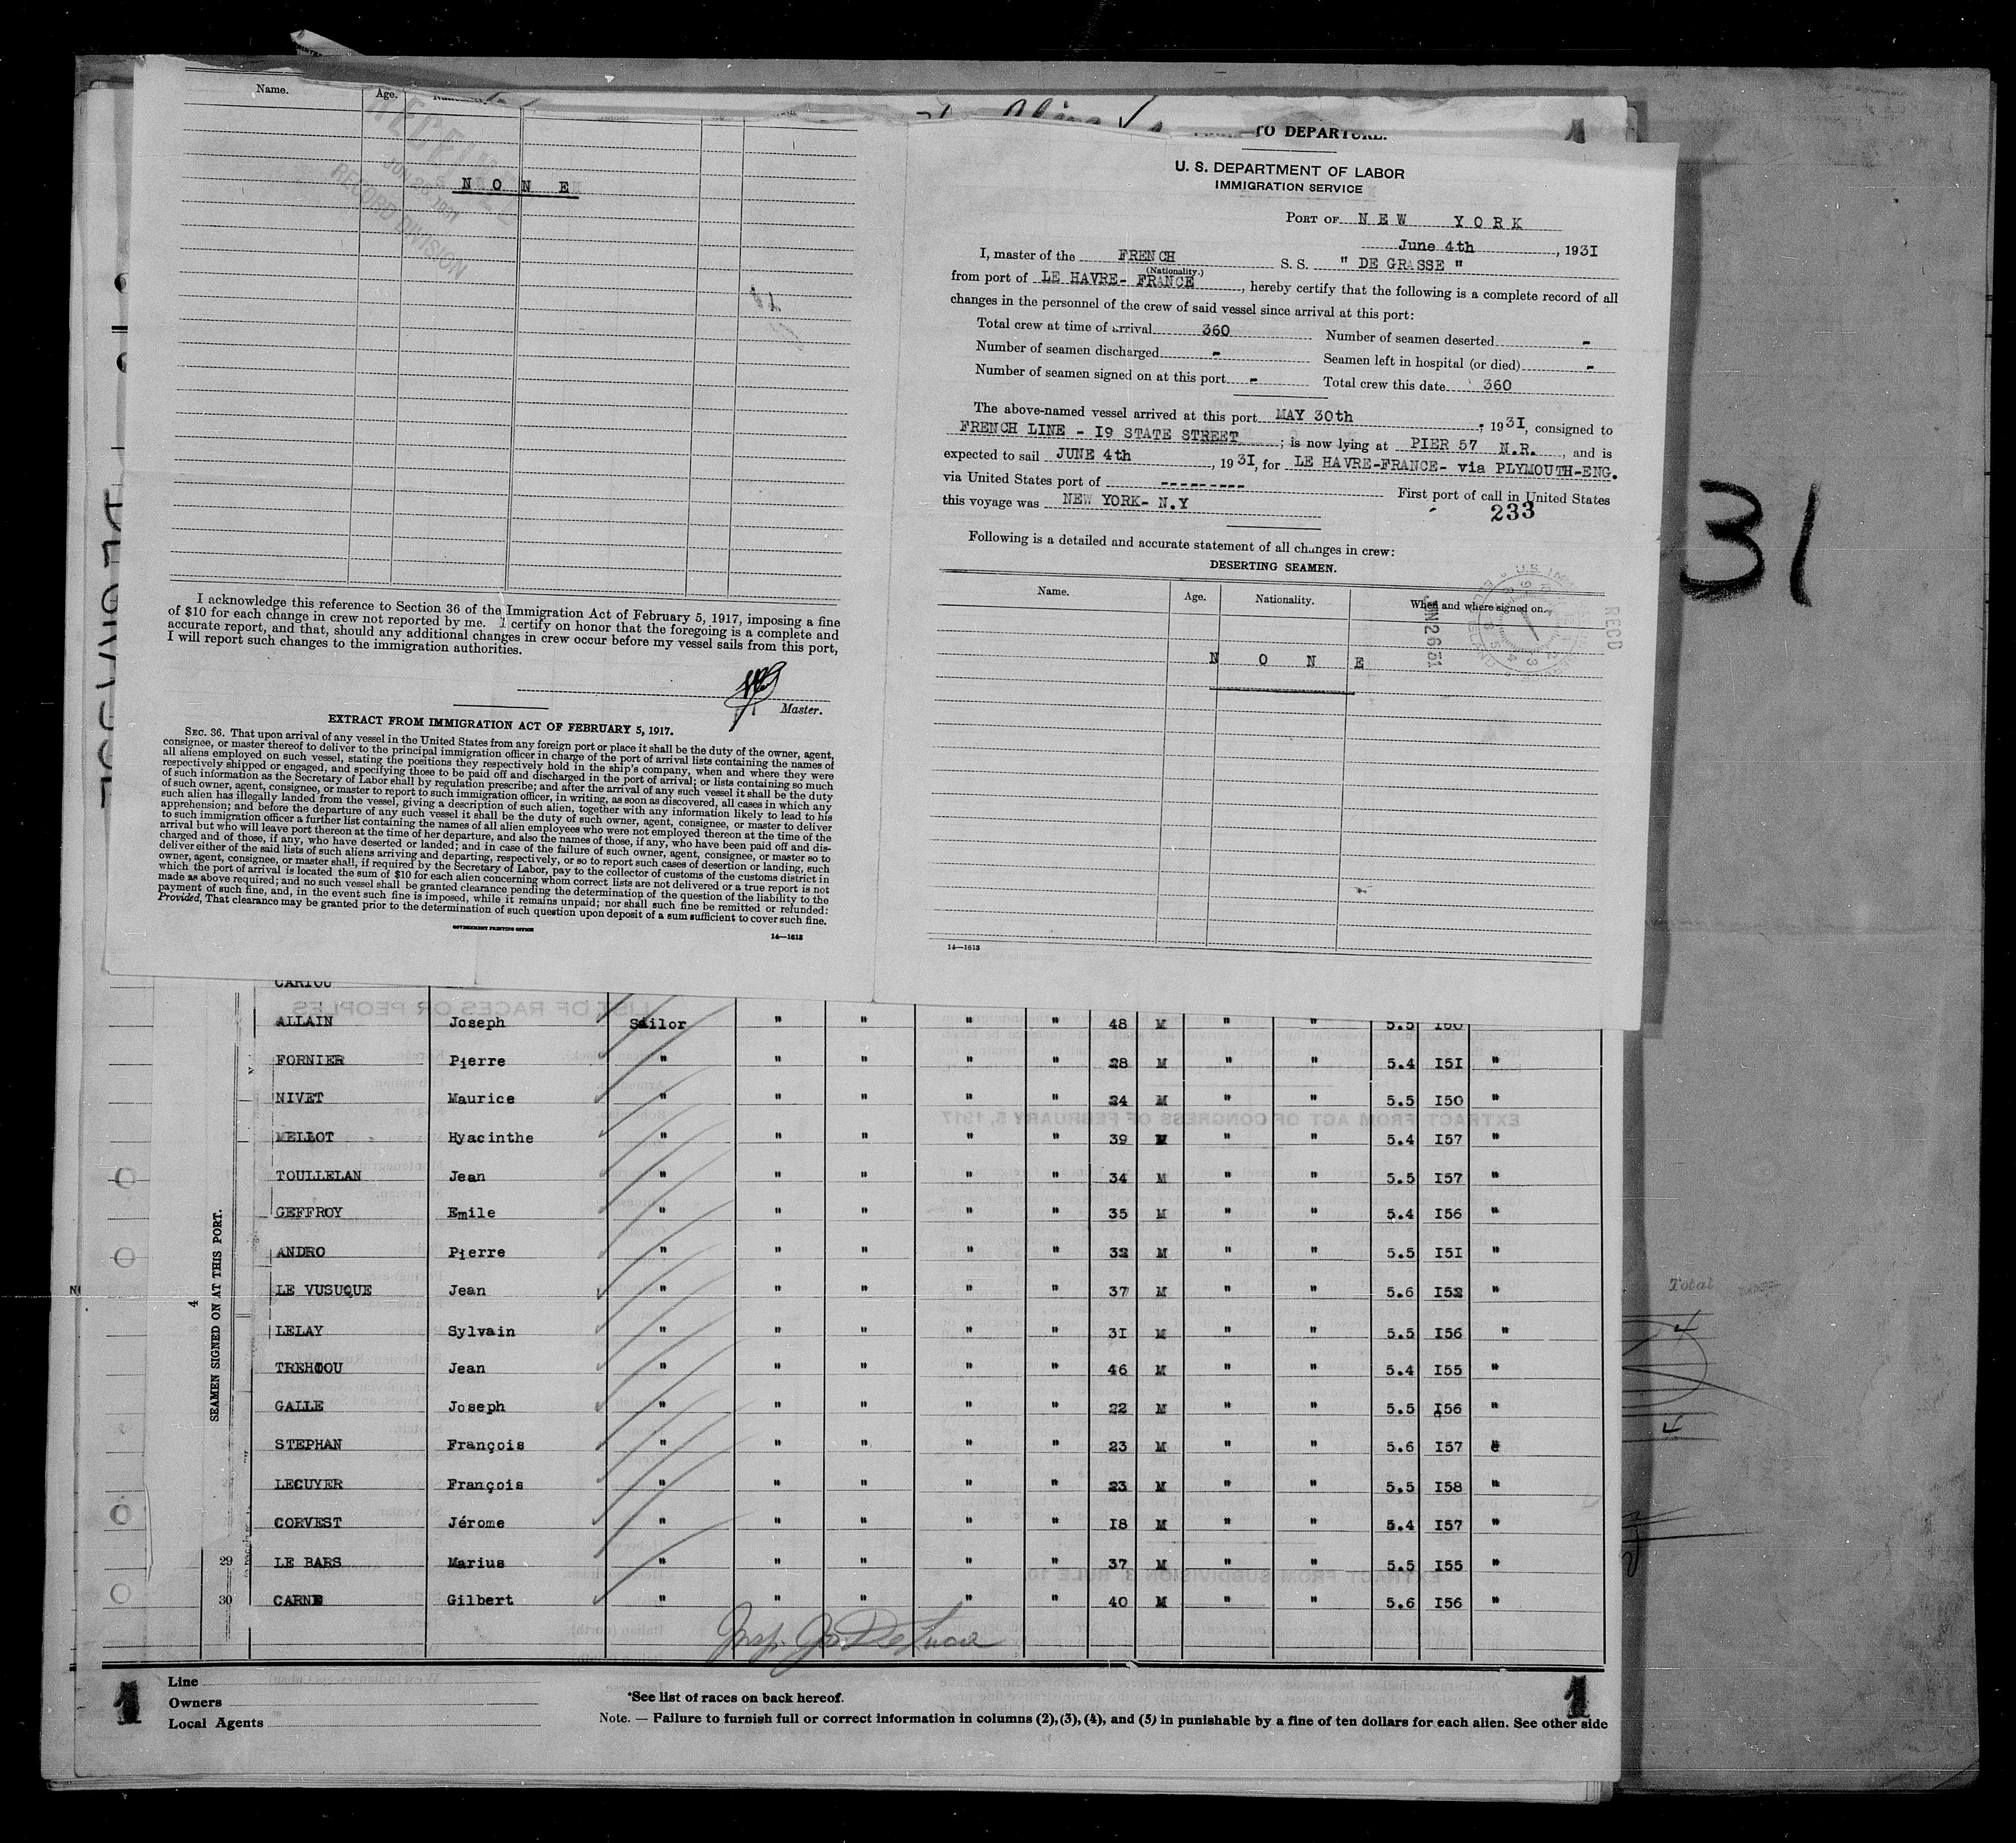 Name. Age.
RECEIVED
RECORD DIVISION
N O N E
I acknowledge this reference to Section 36 of the Immigration Act of February 5, 1917, imposing a fine
of $10 for each change in crew not reported by me. I certify on honor that the foregoing is a complete and
accurate report, and that, should any additional changes in crew occur before my vessel sails from this port,
I will report such changes to the immigration authorities.
Master.
EXTRACT FROM IMMIGRATION ACT OF FEBRUARY 5, 1917.
SEC. 36. That upon arrival of any vessel in the United States from any foreign port or place it shall be the duty of the owner, agent,
consignee, or master thereof to deliver to the principal immigration officer in charge of the port of arrival lists containing the names of
all aliens employed on such vessel, stating the positions they respectively hold in the ship's company, when and where they were
respectively shipped or engaged, and specifying those to be paid off and discharged in the port of arrival; or lists containing so much
of such information as the Secretary of Labor shall by regulation prescribe; and after the arrival of any such vessel it shall be the duty
of such owner, agent, consignee, or master to report to such immigration officer, in writing, as soon as discovered, all cases in which any
such alien has illegally landed from the vessel, giving a description of such alien, together with any information likely to lead to his
apprehension; and before the departure of any such vessel it shall be the duty of such owner, agent, consignee, or master to deliver
to such immigration officer a further list containing the names of all alien employees who were not employed thereon at the time of the
arrival but who will leave port thereon at the time of her departure, and also the names of those, if any, who have been paid off and dis-
charged and of those, if any, who have deserted or landed; and in case of the failure of such owner, agent, consignee, or master so to
deliver either of the said lists of such aliens arriving and departing, respectively, or so to report such cases of desertion or landing, such
owner, agent, consignee, or master shall, if required by the Secretary of Labor, pay to the collector of customs of the customs district in
which the port of arrival is located the sum of $10 for each alien concerning whom correct lists are not delivered or a true report is not
made as above required; and no such vessel shall be granted clearance pending the determination of the question of the liability to the
payment of such fine, and, in the event such fine is imposed, while it remains unpaid; nor shall such fine be remitted or refunded:
Provided, That clearance may be granted prior to the determination of such question upon deposit of a sum sufficient to cover such fine.
GOVERNMENT PRINTING OFFICE
14—1613
TO DEPARTURE.
U. S. DEPARTMENT OF LABOR
IMMIGRATION SERVICE
PORT OF NEW YORK
June 4th, 1931
I, master of the FRENCH S. S. " DE GRASSE "
(Nationality.)
from port of LE HAVRE- FRANCE, hereby certify that the following is a complete record of all
changes in the personnel of the crew of said vessel since arrival at this port:
Total crew at time of arrival 360 Number of seamen deserted -
Number of seamen discharged - Seamen left in hospital (or died) -
Number of seamen signed on at this port - Total crew this date 360
The above-named vessel arrived at this port MAY 30th, 1931, consigned to
FRENCH LINE - I9 STATE STREET; is now lying at PIER 57 N.R., and is
expected to sail JUNE 4th, 1931, for LE HAVRE-FRANCE- via PLYMOUTH-ENG.
via United States port of --------- First port of call in United States
this voyage was NEW YORK- N.Y
233
Following is a detailed and accurate statement of all changes in crew:
DESERTING SEAMEN.
Name. Age. Nationality. When and where signed on.
RECD
JUN 26 31
N O N E
14—1613
31
Total
4
4
SEAMEN SIGNED ON AT THIS PORT.
4
CARIOU
ALLAIN Joseph Sailor " " " " 48 M " " 5.5 I60
FORNIER Pierre " " " " " 28 M " " 5.4 I5I "
NIVET Maurice " " " " " 24 M " " 5.5 I50 "
MELLOT Hyacinthe " " " " " 39 M " " 5.4 I57 "
TOULLELAN Jean " " " " " 34 M " " 5.5 I57 "
GEFFROY Emile " " " " " 35 M " " 5.4 I56 "
ANDRO Pierre " " " " " 32 M " " 5.5 I5I "
LE VUSUQUE Jean " " " " " 37 M " " 5.6 I52 "
LELAY Sylvain " " " " " 3I M " " 5.5 I56 "
TREHIOU Jean " " " " " 46 M " " 5.4 I55 "
GALLE Joseph " " " " " 22 M " " 5.5 I56 "
STEPHAN François " " " " " 23 M " " 5.6 I57 "
LECUYER François " " " " " 23 M " " 5.5 I58 "
CORVEST Jérome " " " " " I8 M " " 5.4 I57 "
29 LE BARS Marius " " " " " 37 M " " 5.5 I55 "
30 CARNE Gilbert " " " " " 40 M " " 5.6 I56 "
1 1
Line
Owners
Local Agents
*See list of races on back hereof.
Note. — Failure to furnish full or correct information in columns (2),(3), (4), and (5) in punishable by a fine of ten dollars for each alien. See other side